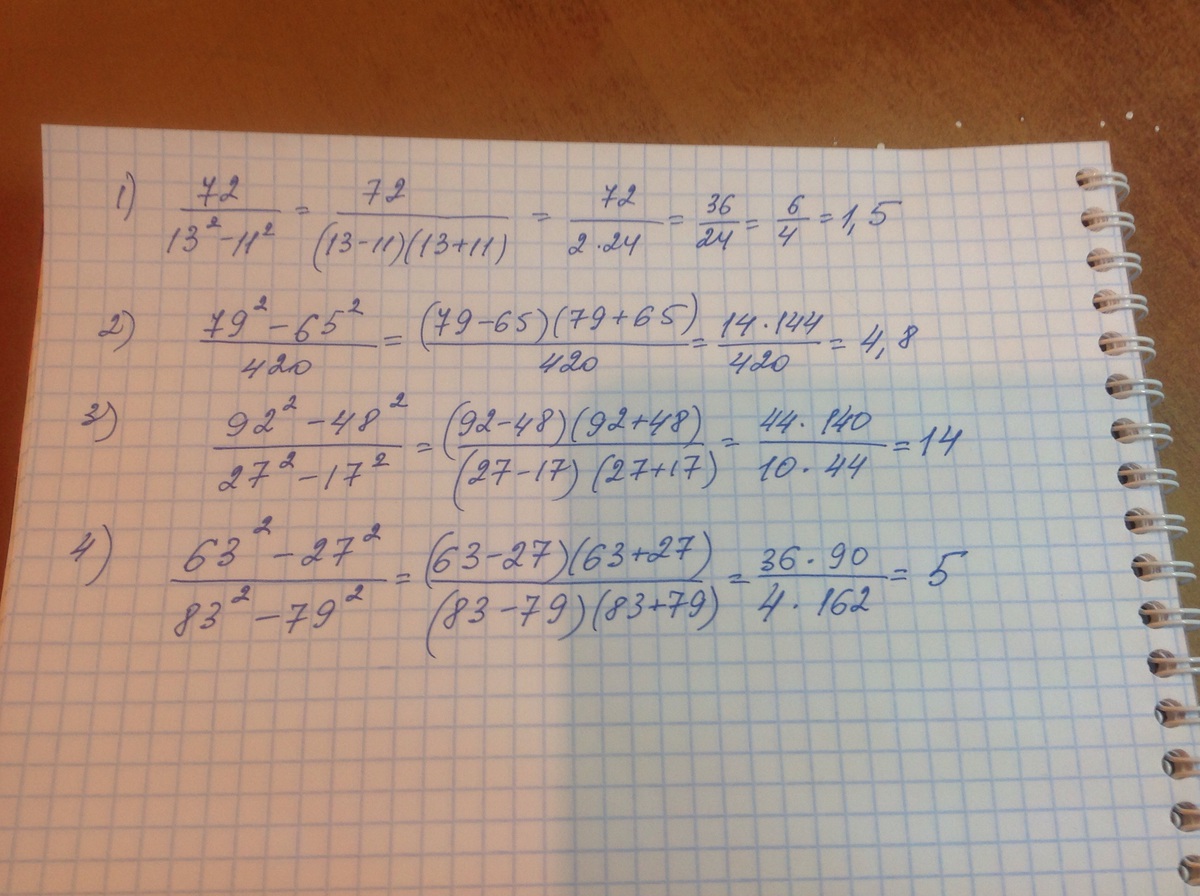 1) 72/(13² - 11²) = 72/((13-11)(13+11)) = 72/(2·24) = 36/24 = 6/4 = 1,5
2) (79² - 65²)/420 = ((79-65)(79+65))/420 = (14·144)/420 = 4,8
3) (92² - 48²)/(27² - 17²) = ((92-48)(92+48))/((27-17)(27+17)) = (44·140)/(10·44) = 14
4) (63² - 27²)/(83² - 79²) = ((63-27)(63+27))/((83-79)(83+79)) = (36·90)/(4·162) = 5